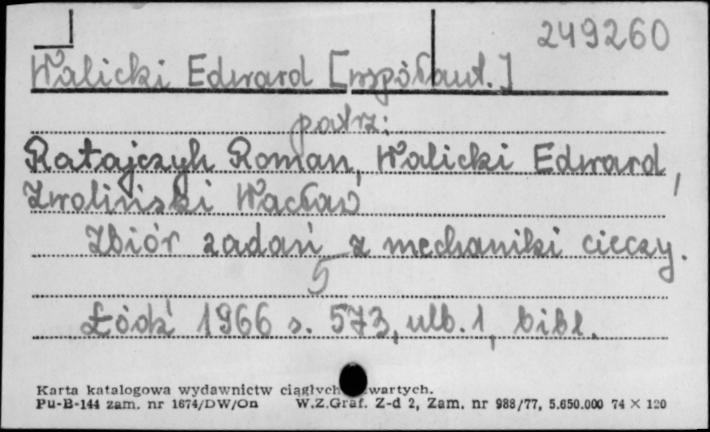 249260
Walicki Edward [współaut.]
patrz:
Ratajczyk Roman, Walicki Edward,
Zwoliński Wacław
Zbiór zadań z mechaniki cieczy.
5
Łódź 1966 s. 573, ulb. 1, bibl.
Karta katalogowa wydawnictw ciągłych wartych.
Pu-B-144 zam. nr 1674/DW/On W.Z.Graf. Z-d 2, Zam. nr 988/77, 5.650.000 74 × 120